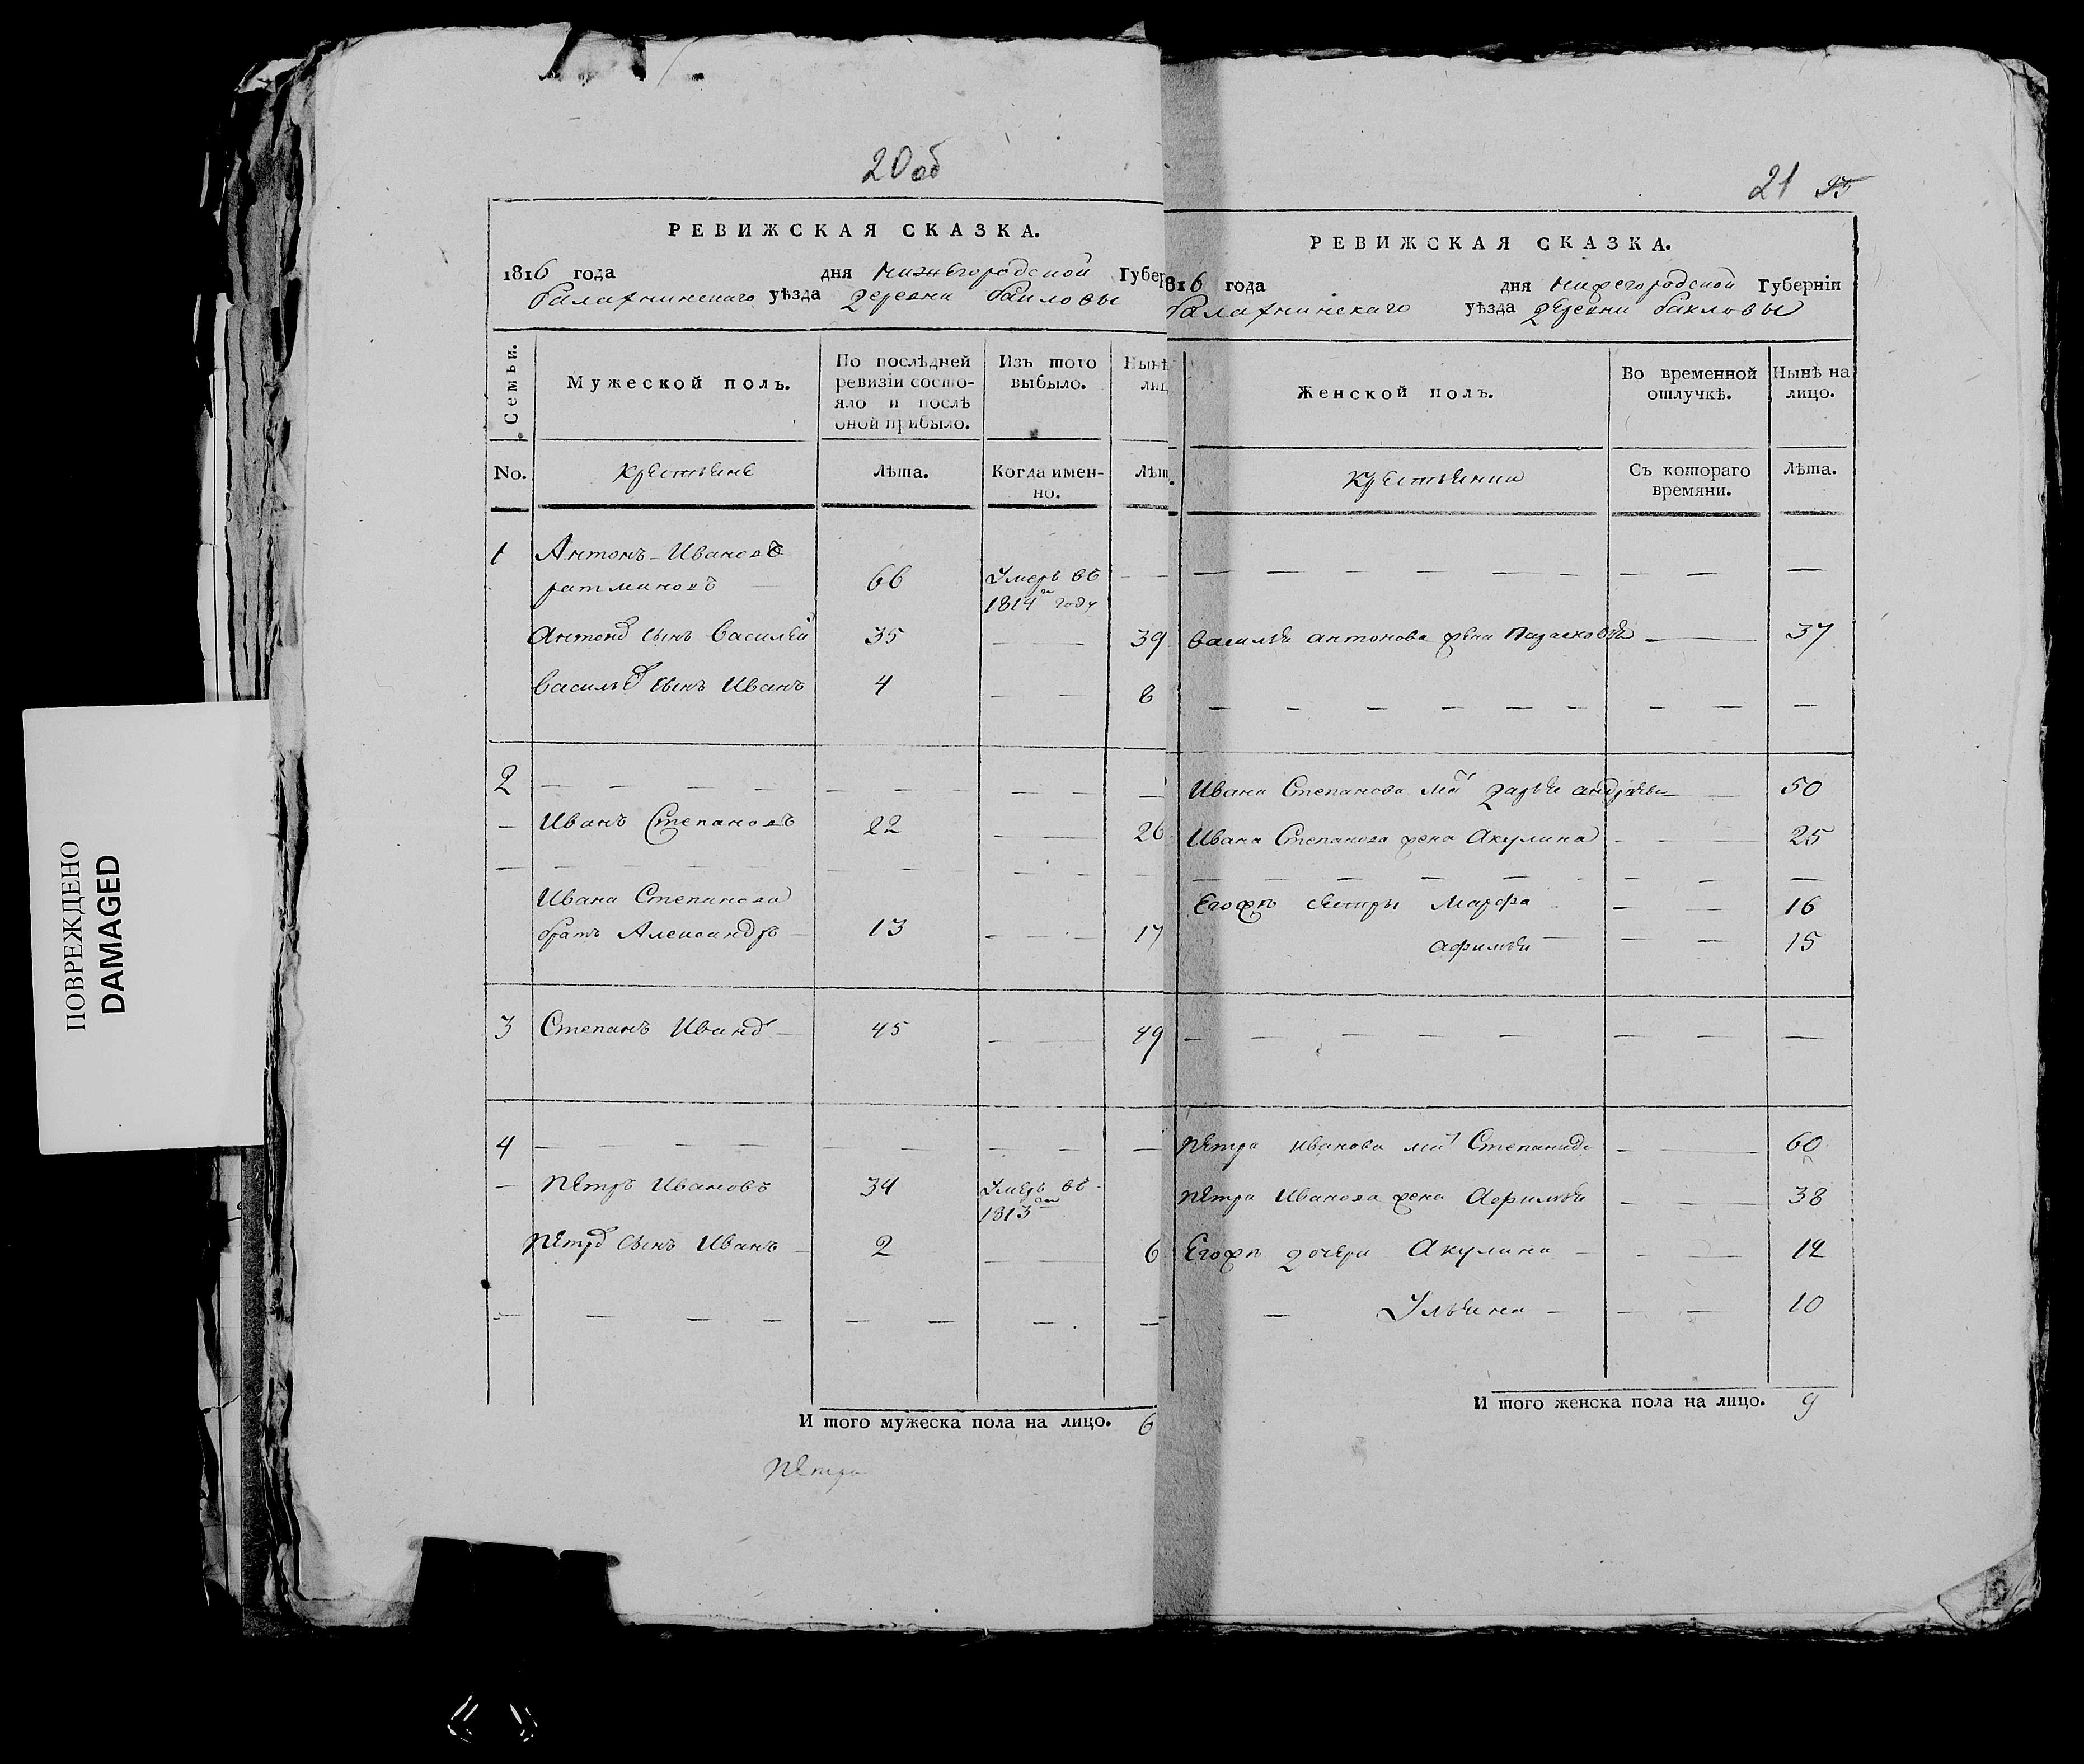 20 об
РЕВИЖСКАЯ СКАЗКА.
1816 года дня Нижегородской Губер
балахнинскаго уѣзда деревни бакловы
Семьи.
Мужеской полъ.
По послѣдней ревизіи состо-яло и послѣ оной прибыло.
Изъ того выбыло.
Нынѣ лиц
No.
Крестьяне
Лѣта.
Когда имен-но.
Лѣт
1 Антонъ Ивановъ
ратмановъ 66 Умеръ въ
1814м году
Антонов сынъ Василей 35 39
Васильев сынъ Иванъ 4 8
2
Иванъ Степановъ 22 26
Ивана Степанова
братъ Александръ 13 17
3 Степанъ Иванов 45 49
4
Петръ Ивановъ 34 Умеръ въ
1813м
Петров сынъ Иванъ 2 6
И того мужеска пола на лицо. 6
Петра
21 95
РЕВИЖСКАЯ СКАЗКА.
816 года дня Нижегородской Губерніи
балахнинскаго уѣзда деревни бакловы
Женской полъ.
Во временной отлучкѣ.
Нынѣ на лицо.
Крестьянки
Съ котораго времяни.
Лѣта.
Василья антонова жена Парасковья 37
Ивана Степанова мат дарья андреева 50
Ивана Степанова жена Акулина 25
Егожъ сестры Марфа 16
афимья 15
Петра Иванова мат Степанида 60
Петра Иванова жена Афимья 38
Егожъ дочери Акулина 12
Ульяна 10
И того женска пола на лицо. 9
ПОВРЕЖДЕНО
DAMAGED